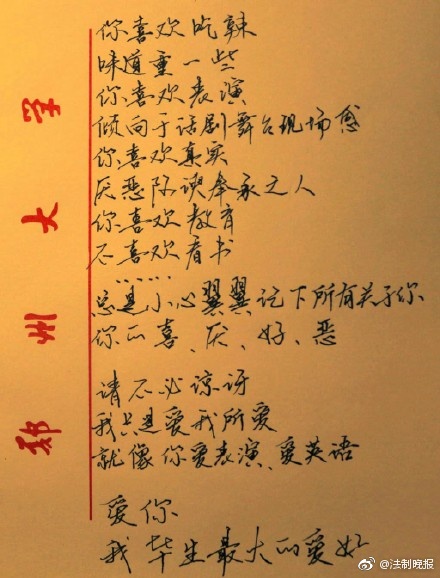 你喜欢吃辣
味道重一些
你喜欢表演
倾向于话剧舞台现场感
你喜欢真实
厌恶阿谀奉承之人
你喜欢教育
不喜欢看书
……
总是小心翼翼记下所有关于你
你的喜、厌、好、恶
请不必谅讶
我只是爱我所爱
就像你爱表演、爱英语
爱你
我毕生最大的爱好
郑州大学
@法制晚报